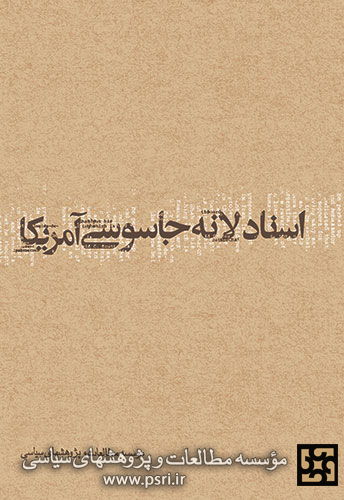 اسناد لانه جاسوسی آمریکا
مؤسسه مطالعات و پژوهشهای سیاسی
www.psri.ir